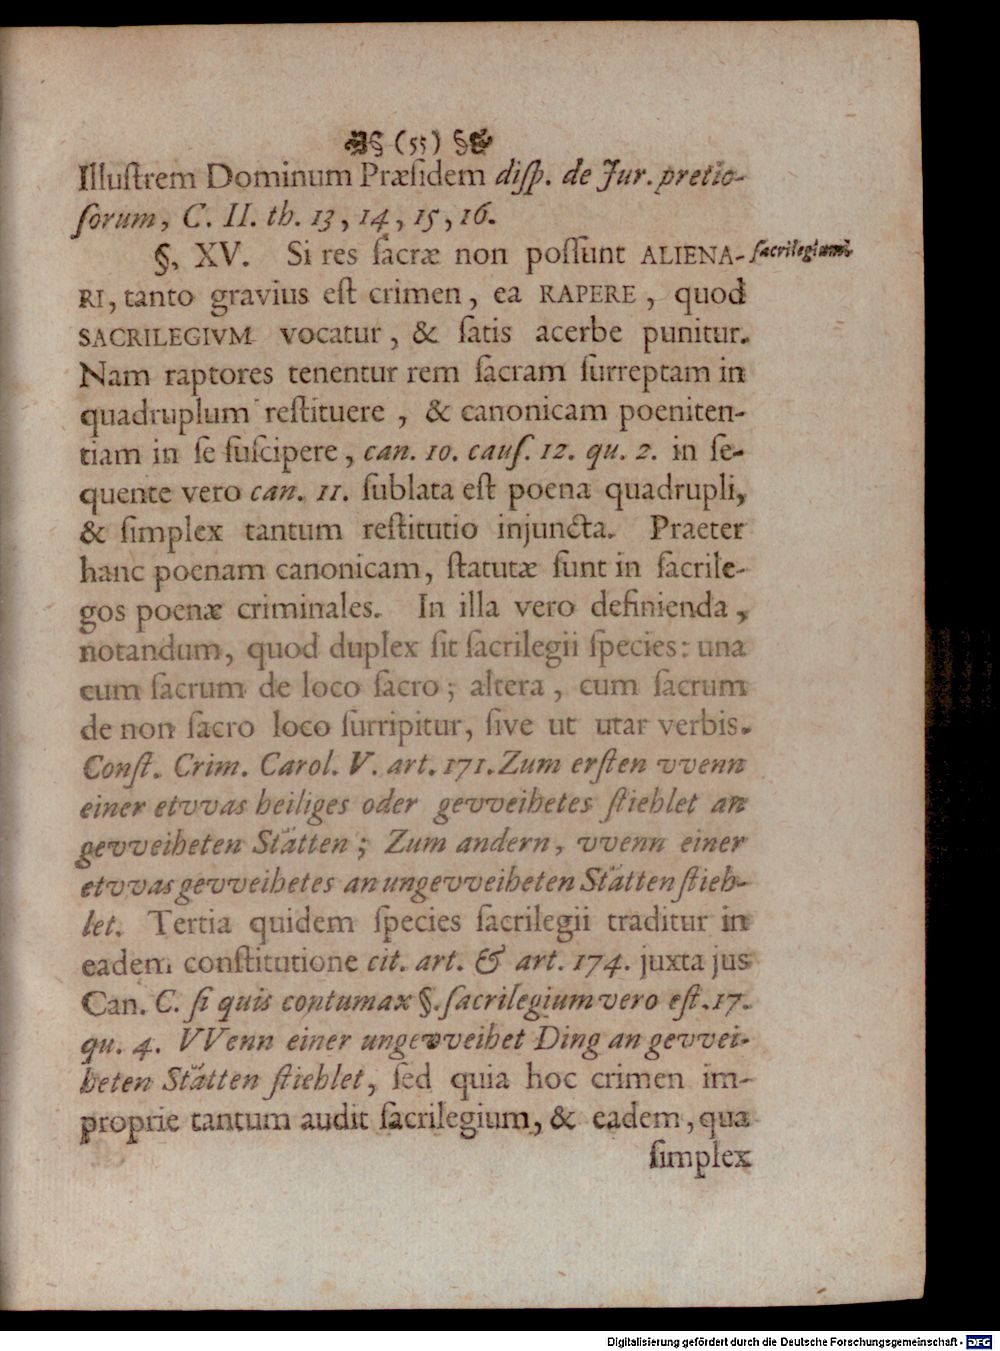 § (55) §
Illuſtrem Dominum Præſidem diſp. de Jur. pretio-
ſorum, C. II. th. 13, 14, 15, 16.
§. XV. Si res ſacræ non poſſunt ALIENA-
ſacrilegium.
RI, tanto gravius eſt crimen, ea RAPERE, quod
SACRILEGIVM vocatur, & ſatis acerbe punitur.
Nam raptores tenentur rem ſacram ſurreptam in
quadruplum reſtituere, & canonicam poeniten-
tiam in ſe ſuſcipere, can. 10. cauſ. 12. qu. 2. in ſe-
quente vero can. 11. ſublata eſt poena quadrupli,
& ſimplex tantum reſtitutio injuncta. Praeter
hanc poenam canonicam, ſtatutæ ſunt in ſacrile-
gos poenæ criminales. In illa vero definienda,
notandum, quod duplex ſit ſacrilegii ſpecies: una
cum ſacrum de loco ſacro; altera, cum ſacrum
de non ſacro loco ſurripitur, ſive ut utar verbis.
Conſt. Crim. Carol. V. art. 171. Zum erſten vvenn
einer etvvas heiliges oder gevveihetes ſtiehlet an
gevveiheten Stätten; Zum andern, vvenn einer
etvvas gevveihetes an ungevveiheten Stätten ſtieh-
let. Tertia quidem ſpecies ſacrilegii traditur in
eadem conſtitutione cit. art. & art. 174. juxta jus
Can. C. ſi quis contumax §. ſacrilegium vero eſt. 17.
qu. 4. VVenn einer ungevveihet Ding an gevvei-
heten Stätten ſtiehlet, ſed quia hoc crimen im-
proprie tantum audit ſacrilegium, & eadem, qua
ſimplex
Digitalisierung gefördert durch die Deutsche Forschungsgemeinschaft - DFG